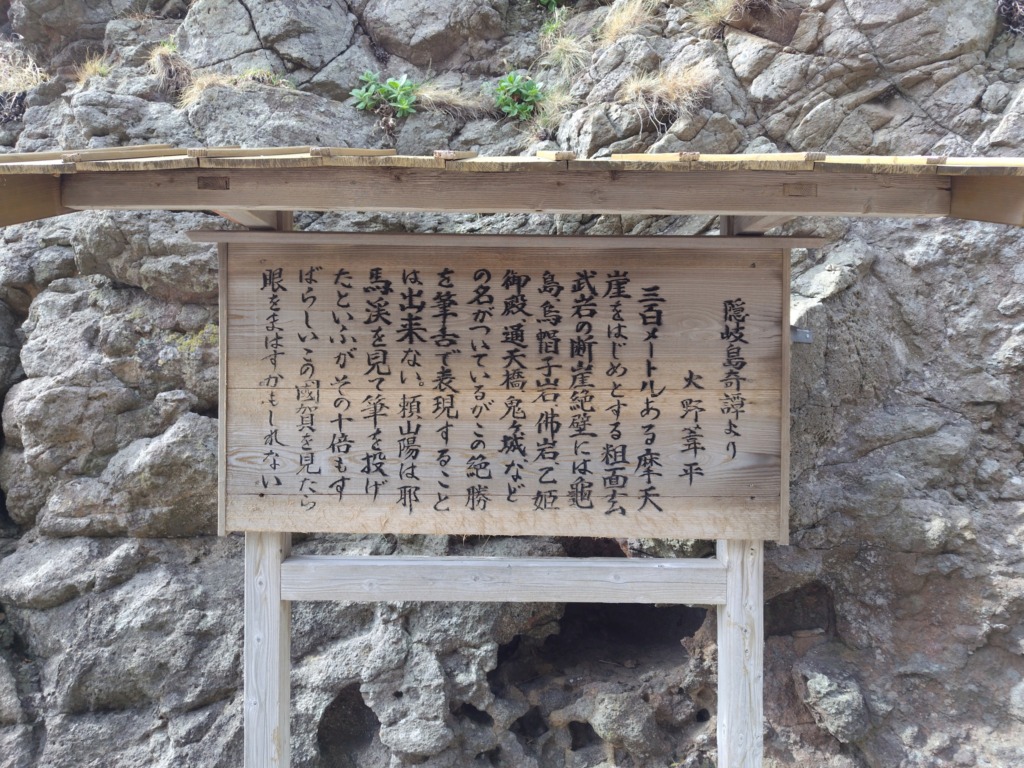 隠岐島奇譚より
火野葦平
三百メートルある摩天
崖をはじめとする粗面玄
武岩の断崖絶壁には龜
島烏帽子岩佛岩乙姫
御殿通天橋鬼ヶ城など
の名がついているがこの絶勝
を筆舌で表現すること
は出来ない。頼山陽は耶
馬溪を見て筆を投げ
たといふがその十倍もす
ばらしいこの國賀を見たら
眼をまはすかもしれない